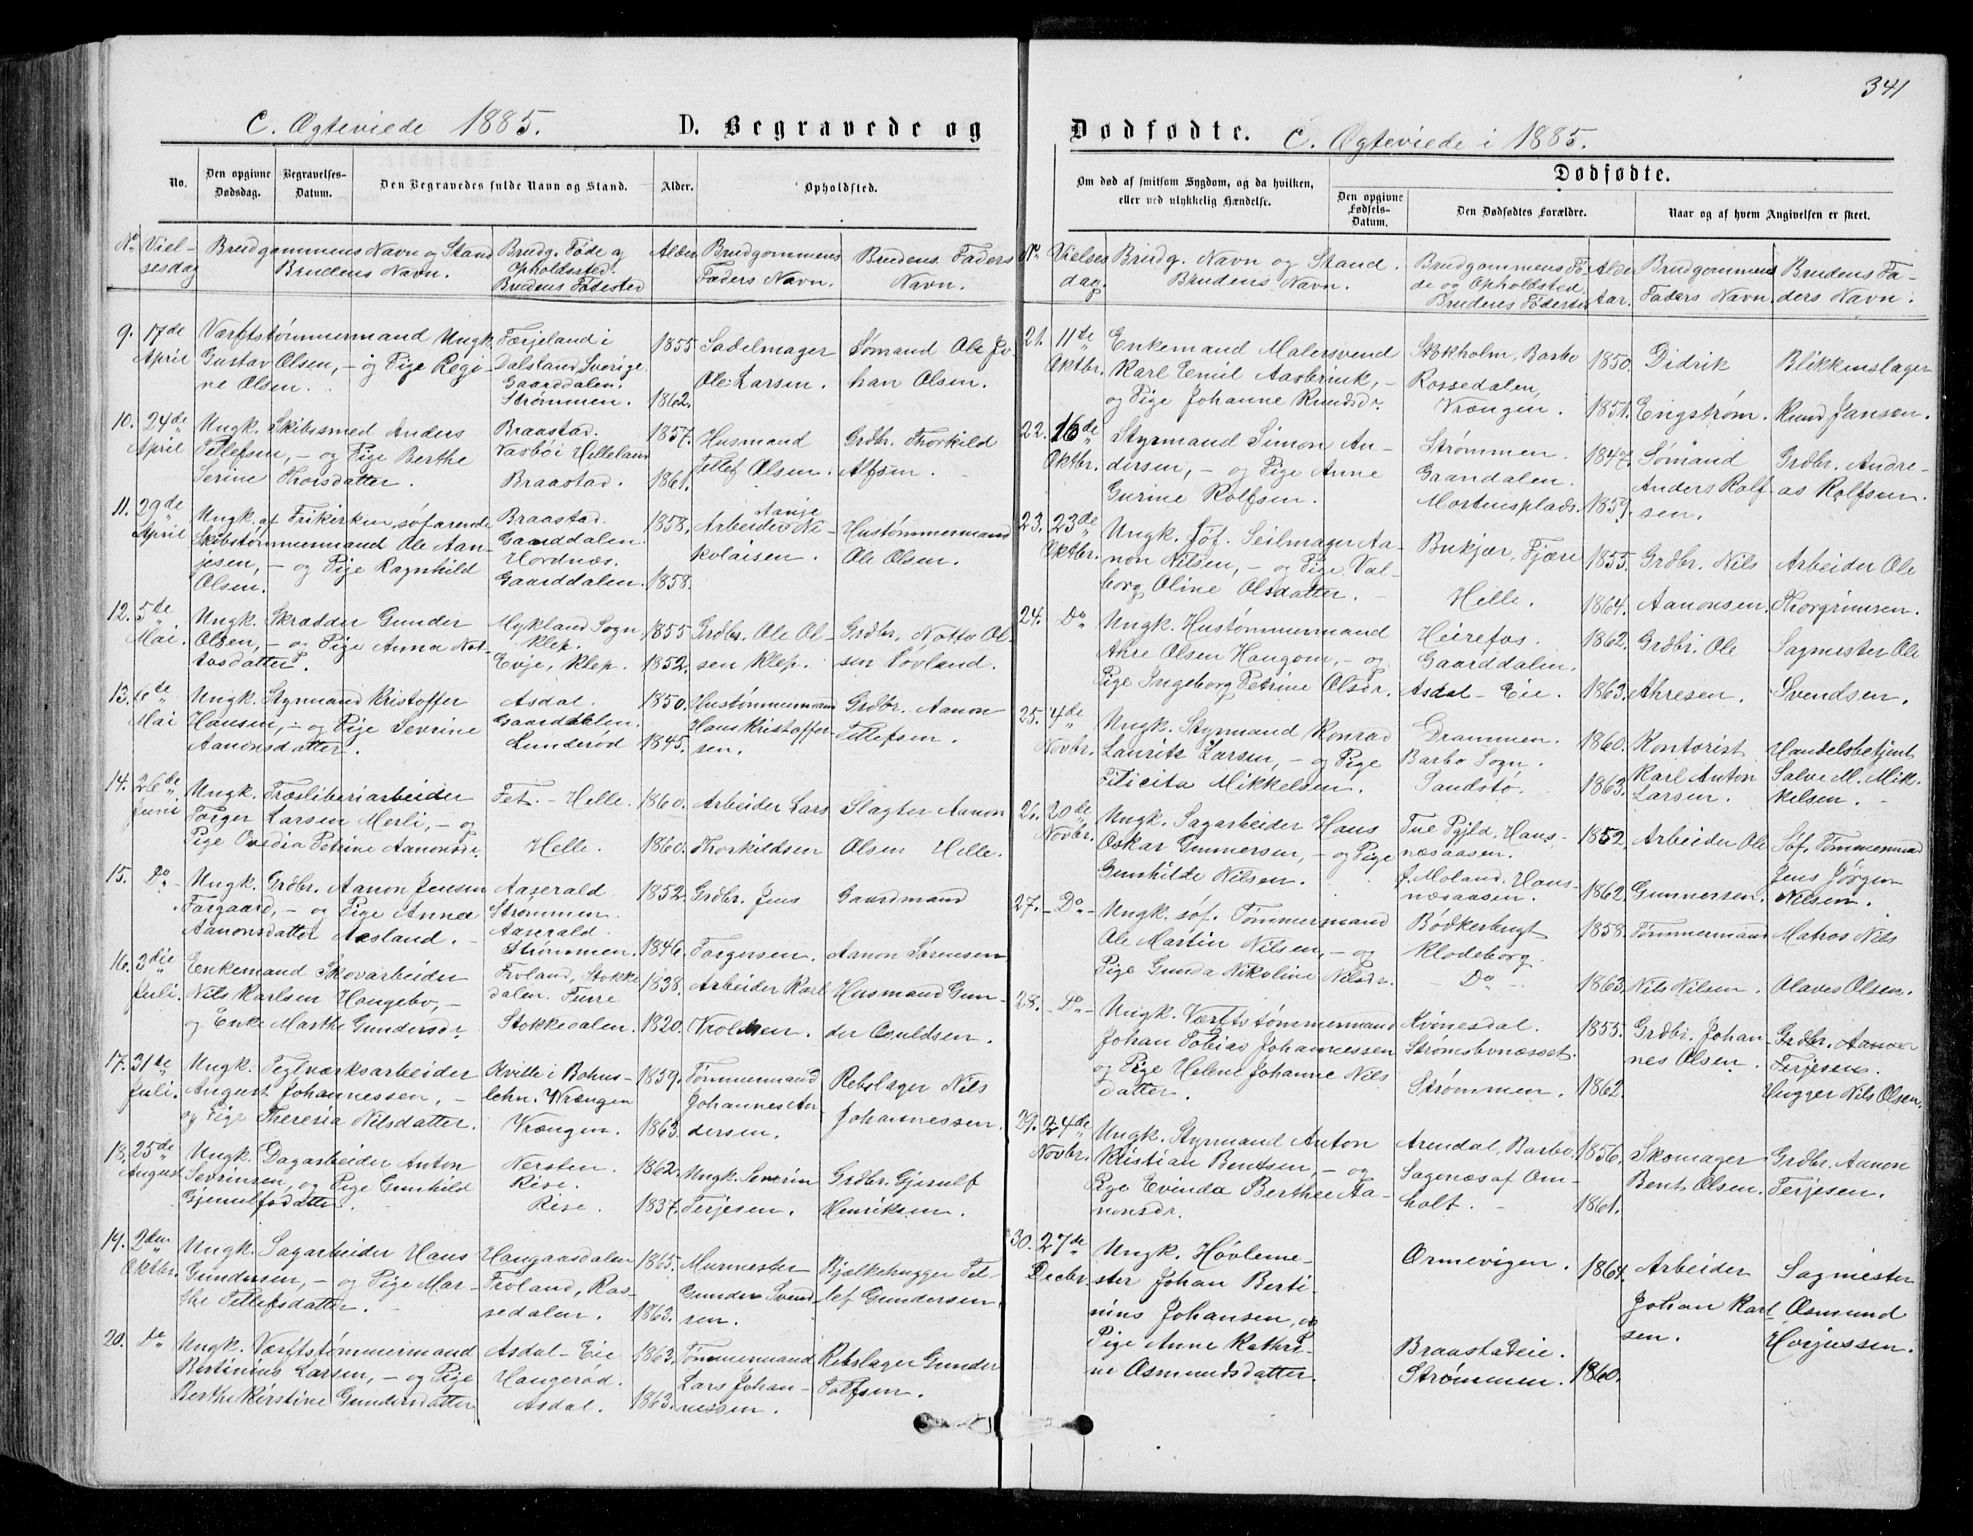 C. Ægteviede 1885.
D. Begravede og
No.
Den opgivne Dødsdag.
Begravelses-Datum.
Den Begravedes fulde Navn og Stand.
Alder.
Opholdsted.
No. Vielsesdag
Brudgommens Navn og Stand
Brudens Navn.
Brudg. Føde og
Opholdssted.
Brudens Fødested
Alder
Brudgommens
Faders Navn.
Brudens Faders
Navn.
9. 17de Værftstømmermand Ungk. Færjeland i 1855. Sadelmager Sømand Ole Jo-
April Gustav Olsen, – og Pige Regi- Dalsland, Sverige. Ole Larsen. han Olsen.
ne Olsen. Gaarddalen.
Strømmen. 1862.
10. 24de Ungk. Skibssmed Anders Braastad. 1857. Husmand Grdbr. Thorkild
April Tellefsen, – og Pige Berthe Vasbø i Helleland Tellef Olsen. Alfsen.
Serine Thorsdatter. Braastad. 1861.
11. 29de Ungk. af Frikirken, søfarende Braastad. 1858. Arbeider Aanje Ni- Hustømmermand
April Skibstømmermand Ole Aan- Gaarddalen. kolaisen. Ole Olsen.
jesen, – og Pige Ragnhild Hordnæs.
Olsen. Gaarddalen. 1858.
12. 5de Ungk. Skrædder Gunder Mykland Sogn 1855 Grdbr. Ole Ol- Grdbr. Notto Ol-
Mai. Olsen, – og Pige Anna Not- Klep. sen Klep. sen Løvland.
tosdatter. Evje, Klep. 1852.
13. 6te Ungk. Styrmand Kristoffer Asdal. 1850. Hustømmermand Grdbr. Aanon
Mai Hansen, – og Pige Severine Gaarddalen. Hans Kristoffer- Tellefsen.
Aanonsdatter. Lunderød 1845. sen.
14. 26de Ungk. Træsliberiarbeider Fet. – Helle. 1860. Arbeider Lars Slagter Aanon
Juni Torger Larsen Merli, – og
Pige Ovedia Petrine Aanonsdr. Helle. 1860. Thorkildsen Olsen Helle.
15. Do – Ungk. Grdbr. Aanon Jensen Aaserald 1852. Grdbr. Jens Gaardmand
Torgaard, – og Pige Anna Strømmen.
Aanonsdatter Aasland. – Aaserald.
Strømmen. 1846. Torgersen. Aanon Sørensen
16. 3die Enkemand Skovarbeider Froland, Stokke 1838. Arbeider Karl Husmand Gun-
Juli. Nils Karlsen Haugebo, – dalen. Furre
og Enke Marthe Gundersdr. Stokkedalen. 1820. der Osuldsen.
17. 31te Ungk. Teglværksarbeider Kville i Bohus- 1859. Tømmermand Rebslager Nils
Juli. August Johannessen, – lehn. Vrængen Johannes An- Johannessen.
og Pige Theresia Nilsdatter. Vrængen. 1863. dersen.
18. 25de Ungk. Dagarbeider Anton Nersten. 1862. Ungk. Severin Grdbr. Gjerulf
August Sevrinsen, og Pige Gunhild Rise.
Gjerulfsdatter. Rise. 1837. Terjesen. Henriksen.
19. 2den Ungk. Sagarbeider Hans Haugaasdalen 1865. Murmester Bjelkehugger Tel-
Oktbr. Gundersen, – og Pige Mar- Froland, Ros- Gunder Svend- lef Gundersen.
the Tellefsdatter. – sedalen. 1863. sen.
20. Do Ungk. Værftstømmermand Asdal – Eie 1863. Tømmermand Rebslager Gunder
Bertinius Larsen, – og Pige Haugerød. Lars Johan- Tolfsen.
Berthe Kirstine Gundersdatter Asdal. 1863. nessen.
341
Dødfødte.
C. Ægteviede i 1885.
Om død af smitsom Sygdom, og da hvilken,
eller ved ulykkelig Hændelse.
Dødfødte.
Den opgivne Fødsels-Datum.
Den Dødfødtes Forældre.
Naar og af hvem Angivelsen er skeet.
No. Vielses
dag.
Brudg. Navn og Stand.
Brudens Navn.
Brudgommens Fø-
de og Opholdsted.
Brudens Fødested
Alder
Aar.
Brudgommens
Faders Navn.
Brudens Fa-
ders Navn.
21. 11de Enkemand Malersvend Stokholm, Barbo 1850. Didrik Blikkenslager
Oktbr. Karl Emil Aasbrink, – Rossedalen,
og Pige Johanne Knudsdr. Vrængen. 1851. Engstrøm. Knud Jansen.
22. 16de Styrmand Simon An- Strømmen. 1847. Sømand Grdbr. Andre-
Oktbr. dersen, – og Pige Anne Gaarddalen. Anders Rolf- as Rolfsen.
Gurine Rolfsen. Mortensplads. 1859. sen.
23. 23de Ungk. Søf. Seilmager Aa- Bukjær, Fjære 1855. Grdbr. Nils Arbeider Ole
Oktbr. non Nilsen, – og Pige Val-
borg Oline Olsdatter. – Helle. 1864. Aanonsen. Thorgrimsen.
24. Do Ungk. Hustømmermand Heirefos. 1862. Grdbr. Ole Sagmester Ole
Ahre Olsen Haugom, – og Gaarddalen.
Pige Ingeborg Petrine Olsdr. Asdal – Eie. 1863. Ahresen. Svendsen.
25. 4de Ungk. Styrmand Konrad Drammen. 1860. Kontorist Handelsbetjent
Novbr. Laurits Larsen, – og Pige Barbo Sogn. Karl Anton Salve M. Mik-
Felicita Mikkelsen. Sandstø. 1863. Larsen. kelsen. –
26. 20de Ungk. Sagarbeider Hans Tue Pgjld. Hans- 1852. Arbeider Ole Søf. Tømmermand
Novbr. Oskar Gunnersen, – og Pige næsaasen. Jens Jørgen
Gunhilde Nilsen. Ø. Moland. Hans-
næsaasen. 1862 Gunnersen. Nilsen.
27. – Do – Ungk. søf. Tømmermand Bødkerbugt 1858. Tømmermand Matros Nils
Ole Martin Nilsen, – og Klodeborg.
Pige Gunda Nikoline Nilsdr. – Do – 1863. Nils Nilsen. Olaves Olsen.
28. – Do – Ungk. Værftstømmermand Kvinesdal. 1855. Grdbr. Johan- Grdbr. Aanon
Johan Tobias Johannessen Strømsbunæsset. nes Olsen. Terjesen.
og Pige Helene Johanne Nils
datter. Strømmen. 1862. Hugger Nils Olsen.
39. 24de Ungk. Styrmand Anton Arendal, Barbo. 1856. Skomager Grdbr. Aanon
Novbr. Kristian Bentsen, – og Sagenæs af Om- Bent Olsen. Terjesen.
Pige Evinda Berthee Aa- holt. – 1861.
nonsdr.
30. 27de Ungk. Høvleme- Ormevigen. 1864. Arbeider Sagmester
Decbr ster Johan Berti- Johan Karl- Osmund
nius Johansen, og sen. Horjussen.
Pige Anne Kathri- Braastadeie.
ne Osmundsdatter. Strømmen. 1860.